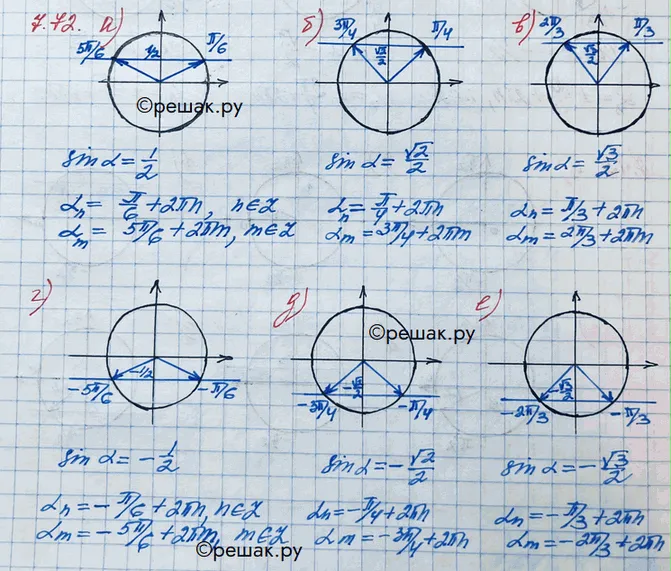 7.72. а)
5π/6 1/2 π/6
©решак.ру
sin α = 1/2
αn = π/6 + 2πn, n∈Z
αm = 5π/6 + 2πm, m∈Z
б)
3π/4 √2/2 π/4
sin α = √2/2
αn = π/4 + 2πn
αm = 3π/4 + 2πm
в)
2π/3 √3/2 π/3
sin α = √3/2
αn = π/3 + 2πn
αm = 2π/3 + 2πm
г)
-5π/6 -1/2 -π/6
sin α = -1/2
αn = -π/6 + 2πn, n∈Z
αm = -5π/6 + 2πm, m∈Z
©решак.ру
д)
©решак.ру
-3π/4 -√2/2 -π/4
sin α = -√2/2
αn = -π/4 + 2πn
αm = -3π/4 + 2πn
е)
-2π/3 -√3/2 -π/3
sin α = -√3/2
αn = -π/3 + 2πn
αm = -2π/3 + 2πn